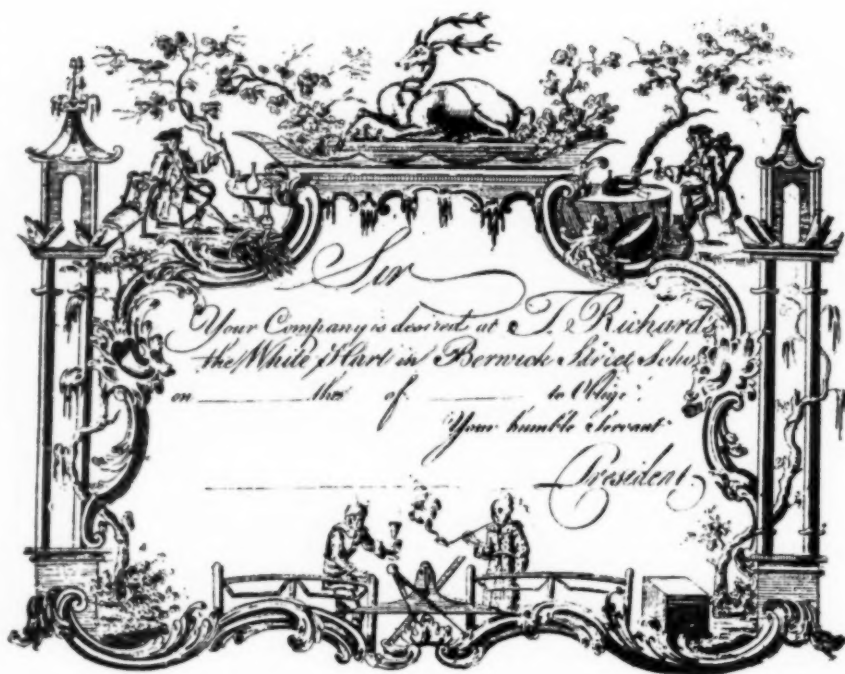 Sir
Your Company is desired at T. Richards
the White Hart in Berwick Street Soho
on the of to Oblige
Your humble Servant
President